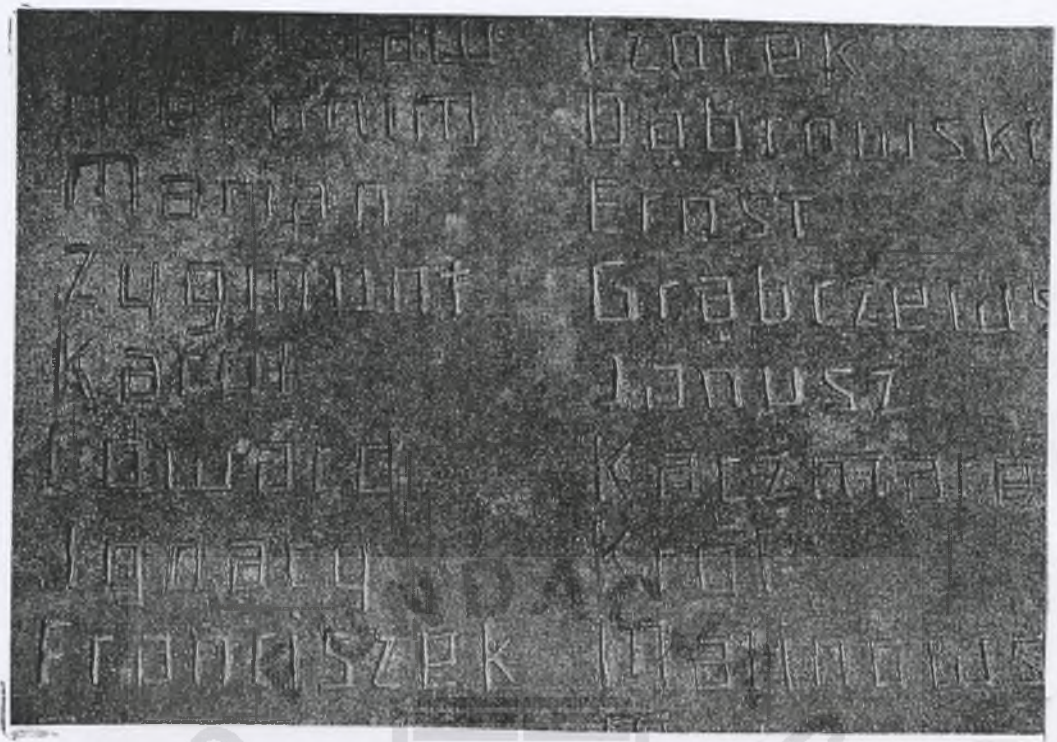 Izorek
Hieronim Dąbrowski
Marian Ernst
Zygmunt Grąbczews
Karol Janusz
Edward Kaczmare
Ignacy Król
Franciszek Malinows